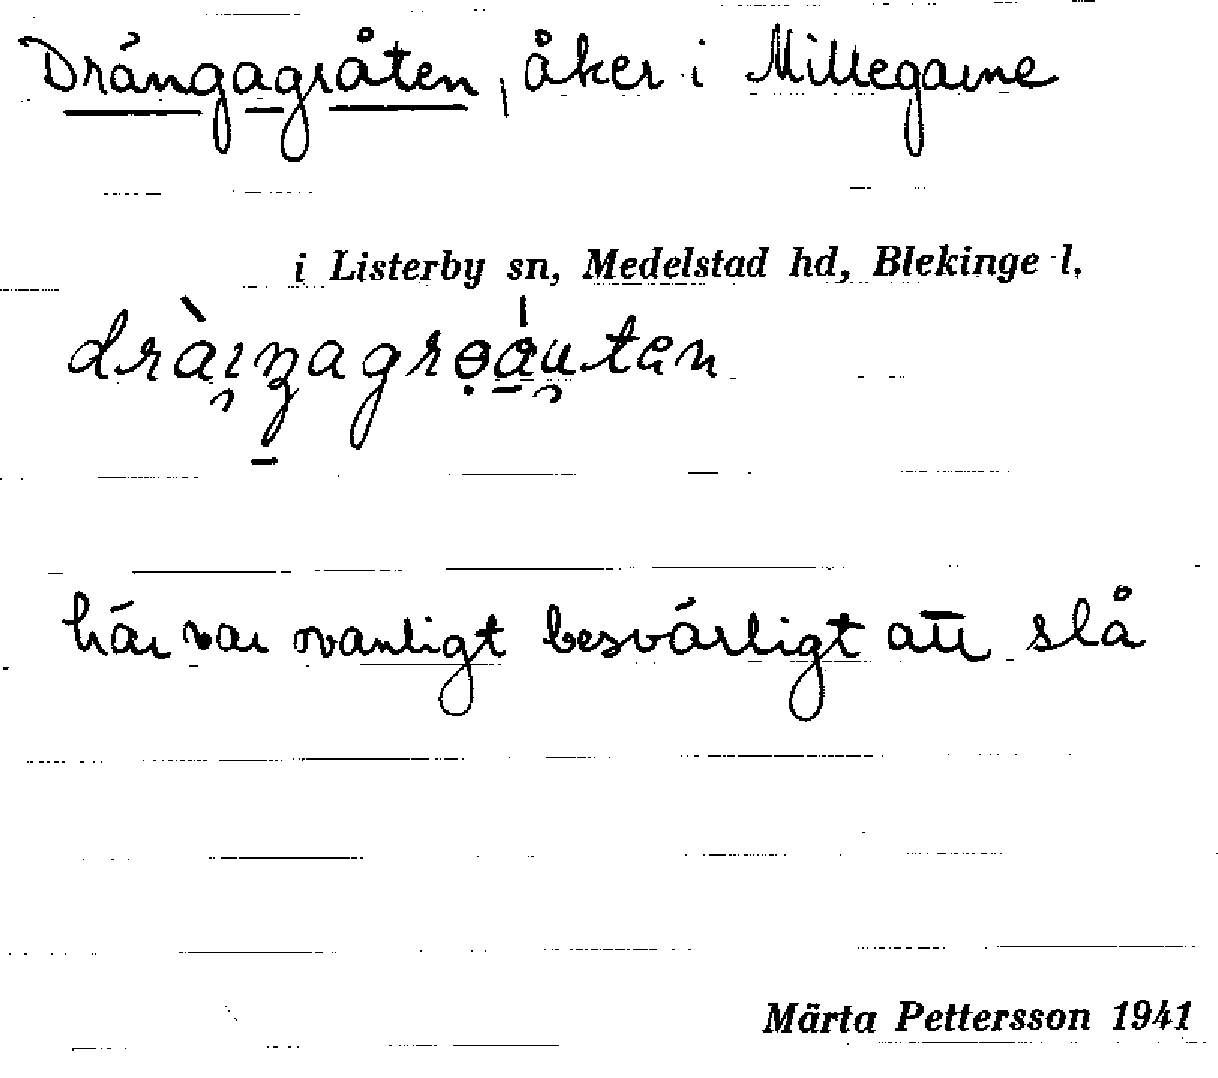 Drängagråten, åker i Millegarne
i Listerby sn, Medelstad hd, Blekinge l.
här var ovanligt besvärligt att slå
Märta Pettersson 1941